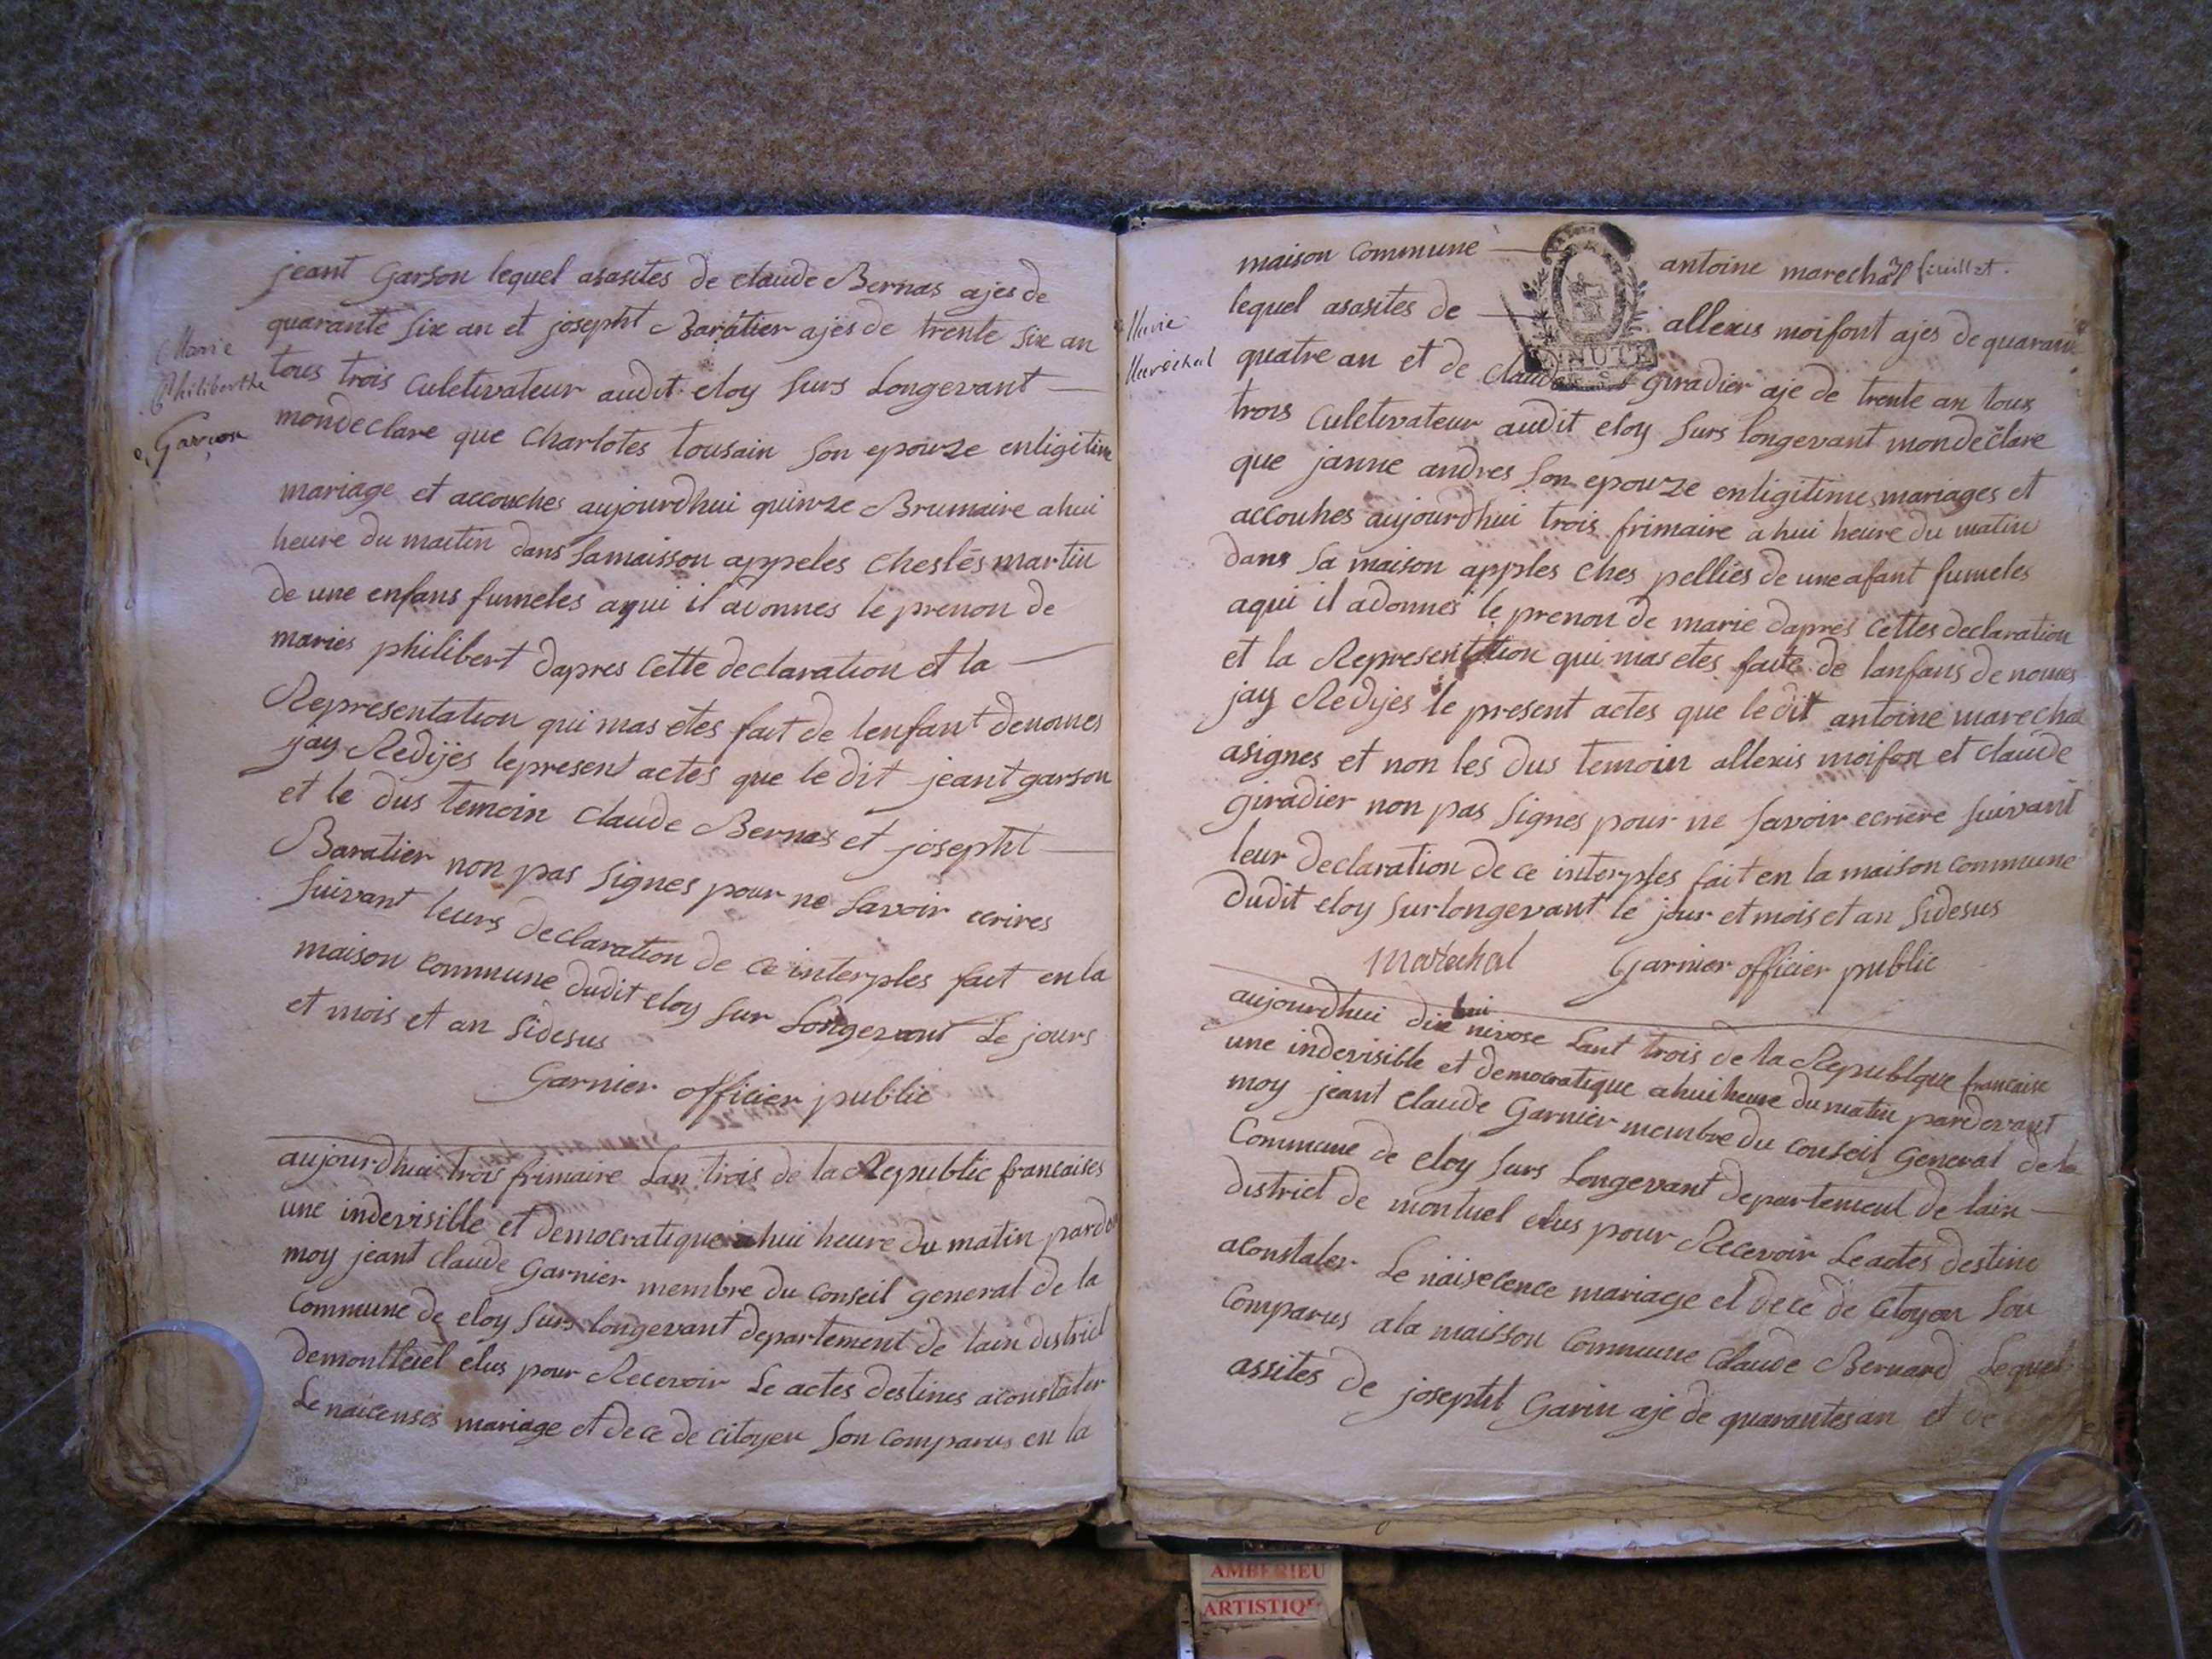 jeant Garson lequel asasites de claude Bernas ajes de
quarante six an et josepht Baratier ajes de trente six an
Marie
Philiberthe
Garçon
tous trois culetivateur audit eloy surs Longevant
mondeclare que Charlotes tousain son epouze enligitime
mariage et accouches aujourdhui quinze Brumaire ahui
heure du maitin dans samaisson appeles cheslés martin
de une enfans fumeles aqui il adonnes le prenon de
maries philibert dapres cette declaration et la
Representation qui mas etes fait de lenfant denomes
jay Redijes lepresent actes que le dit jeant garson
et le dus temoin claude Bernas et josepht
Baratier non pas signes pour ne savoir ecrires
suivant leurs declaration de ce interples fait en la
maison commune dudit eloy sur Longevant Le jours
et mois et an sidesus
Garnier officier public
aujourdhui trois frimaire Lan trois de la Republic francaises
une indevisible et democratique ahui heure du matin parde
moy jeant claude Garnier membre du conseil general de la
commune de eloy surs longevant departement de lain district
demontluel elus pour Recevoir Le actes destines aconstater
Le naicenses mariage et de ce de citoyen son comparus en la
maison commune antoine marechal feuillet.
Marie
Marechal
lequel asasites de allexis moifont ajes de quarante
MINUTE
quatre an et de claude giradier aje de trente an tous
trois culetivateur audit eloy surs longevant mondeclare
que janne andres son epouze enligitime mariages et
accouhes aujourdhui trois frimaire a hui heure du matin
dans sa maison apples ches pelliés de une afant fumeles
aqui il adonnes le prenon de marie dapres cettes declaration
et la Representation qui mas etes faite de lanfans de nomes
jay Redijes le present actes que le dit antoine marechal
asignes et non les dus temoin allexis moifon et claude
giradier non pas signes pour ne savoir ecriere suivant
leur declaration de ce interples fait en la maison commune
dudit eloy surlongevant le jour et mois et an sidesus
marechal Garnier officier public
hui
aujourdhui dix nivose Lant trois de la Republque francaise
une indevisible et democratique ahuiheure du matin pardevant
moy jeant claude Garnier membre du conseil General de la
Commune de eloy surs Longevant departement de lain
district de montuel elus pour Recevoir Le actes destine
aconstater Le naisecence mariage et de ce de citoyen son
comparus ala maisson Commune Claude Bernard Lequel
assites de josepht Garin aje de quarantesan et de
AMBERIEU
ARTISTIQ